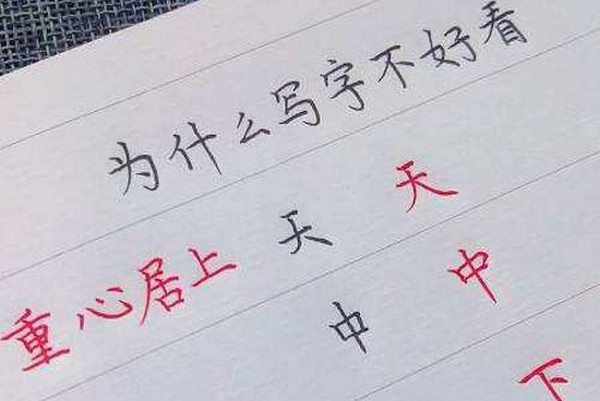 为什么写字不好看
重心居上 天 天
中 中
下